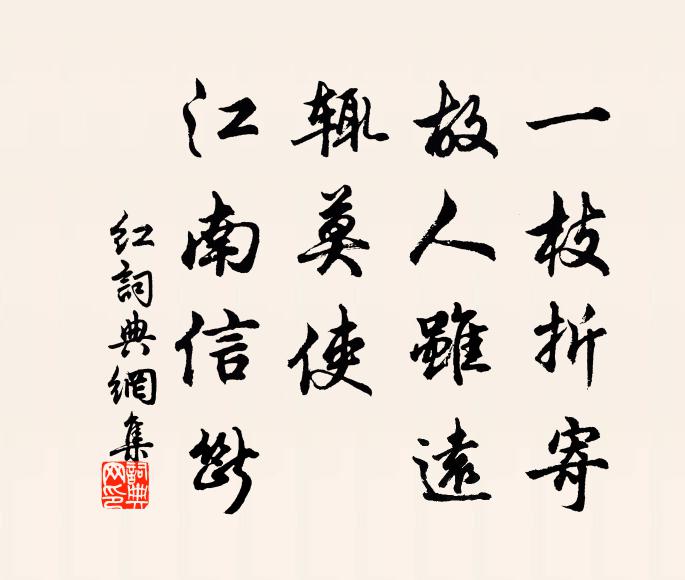 一枝折寄
故人雖遠
輒莫使
江南信斷
紅詞典網集
詞典网印